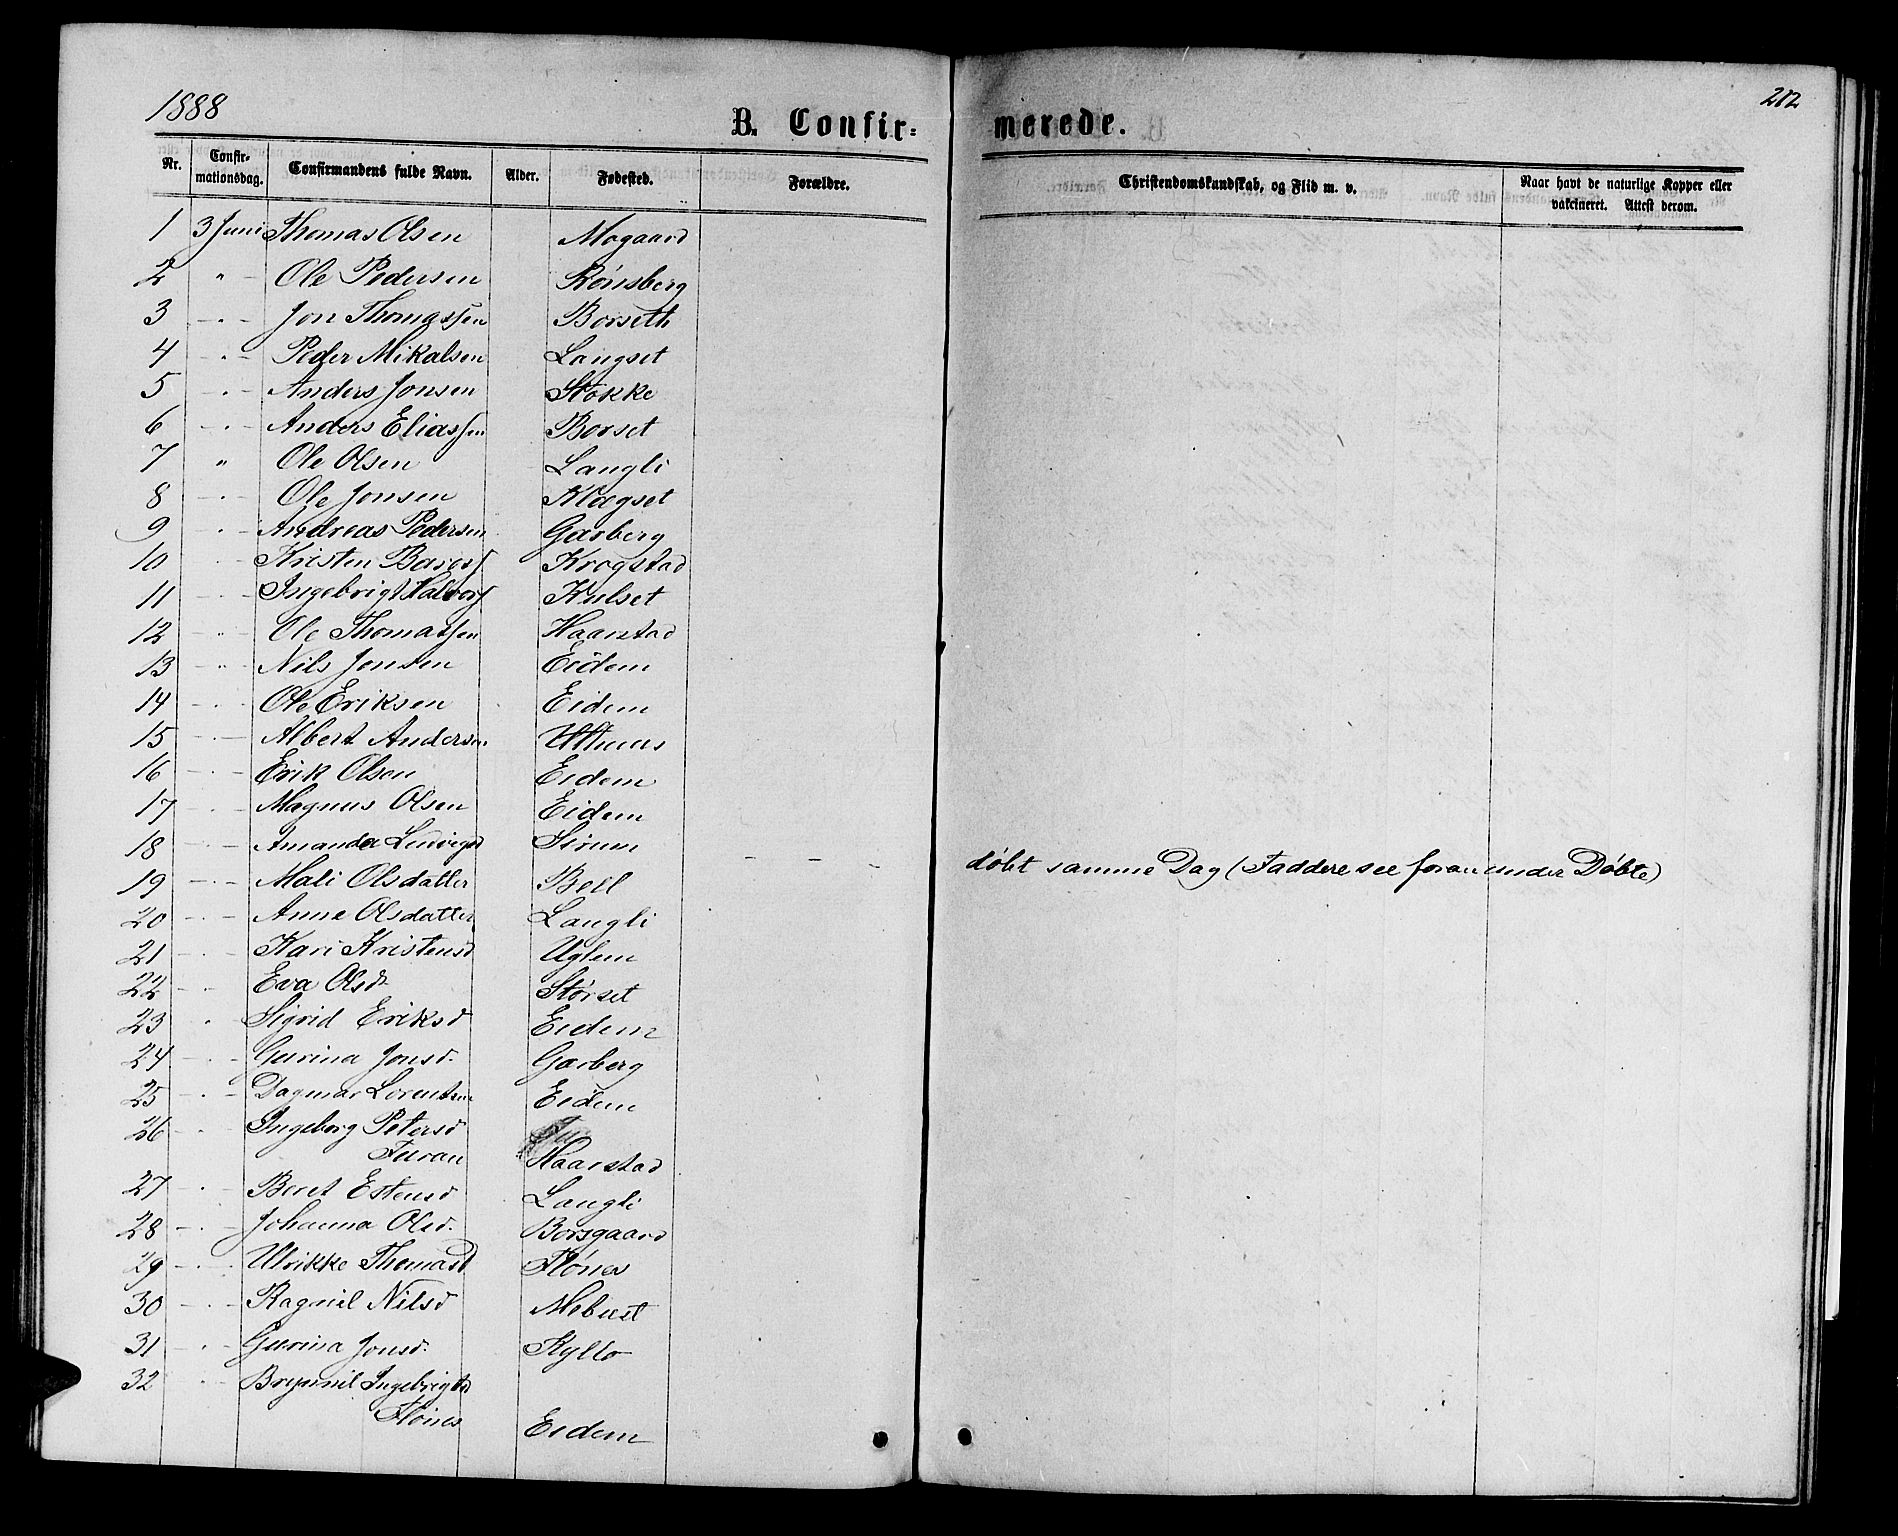 1888
B. Confir=
merede.
212
Nr.
Confir-
mationsdag.
Confirmandens fulde Navn.
Alder.
Fødested.
Forældre.
Christendomskundskab, og Flid m. v.
Naar havt de naturlige Kopper eller
vakcineret. Attest derom.
1 3 Juni Thomas Olsen Mogaard
2 " Ole Pedersen Rønsberg
3 " Jon Thomassen Borseth
4 " Peder Mikalsen Langset
5 " Anders Jonsen Stokke
6 " Anders Eliassen Borset
7 " Ole Olsen Langli
8 " Ole Jonsen Klægset
9 " Andreas Pedersen Garberg
10 " Kristen Krogstad
11 " Ingebrigt Halvors Kulset
12 " Ole Thomassen Haarstad
13 " Nils Jonsen Eidem
14 " Ole Eriksen Eidem
15 " Albert Andersen
16 " Erik Olsen Eidem
17 " Magnus Olsen Eidem
18 " Amanda Ludvigsd Sirum - - - døbt samme Dag (Faddere see foran under Døbte)
19 " Mali Olsdatter Bell
20 " Anne Olsdatter Langli
21 " Kari Kristensd Uglem
22 " Eva Olsd Størset
23 " Sigrid Eriksd Eidem
24 " Gurina Jonsd. Garberg
25 " Dagmar Lorentsen Eidem
26 " Ingeborg Petersd
Furan Haarstad
27 " Beret Estensd Langli
28 " Johanna Olsd. Borsgaard
29 " Ulrikke Thomasd Flønes
30 " Ragnil Nilsd Mebust
31 " Gurina Jonsd. Kyllo
32 " Brynnil Ingebrigtsd
Flønes Eidem